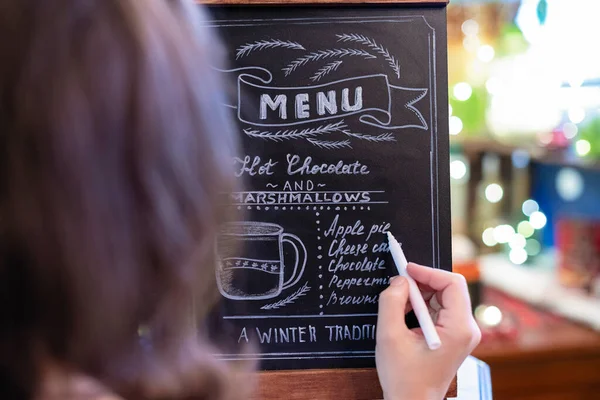 MENU
Hot Chocolate
~AND~
MARSHMALLOWS
Apple pie
Cheese ca
Chocolate
Peppermin
Brown
A WINTER TRADITI